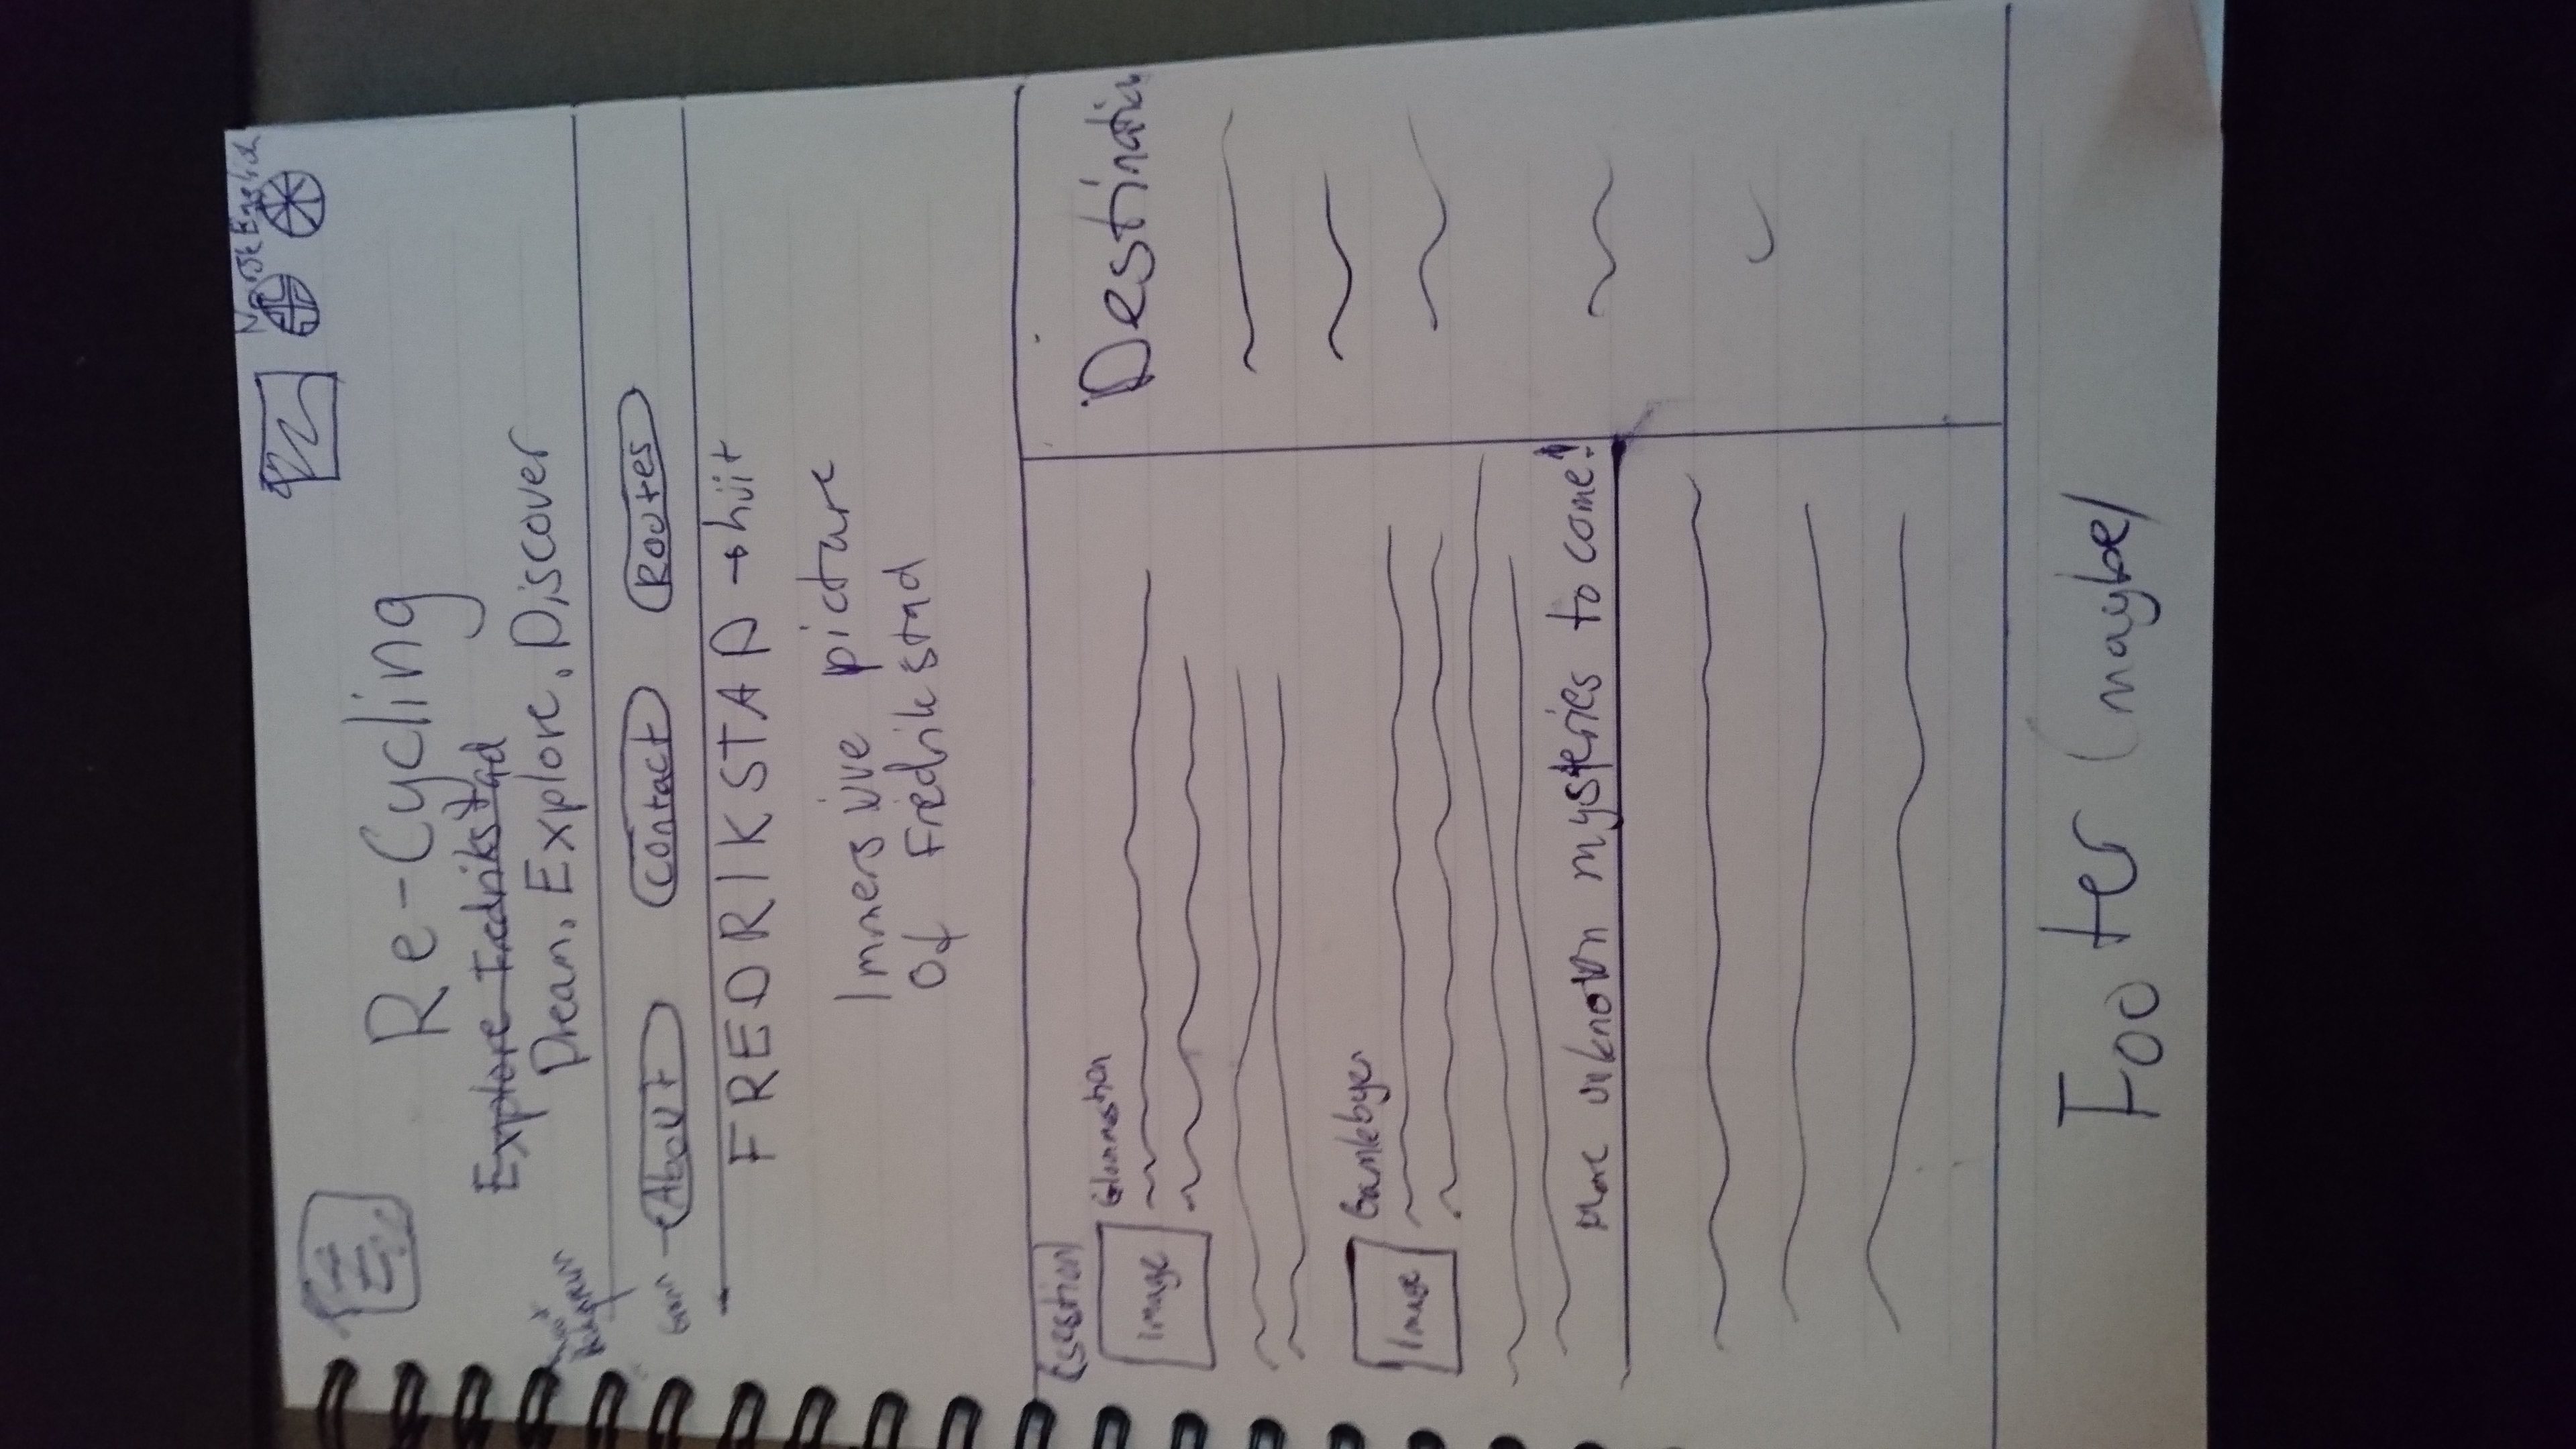 Norsk English
Re-Cycling
Explore Fredrikstad
Dream. Explore. Discover
About Contact Routes
FREDRIKSTAD → hvit
Immersive picture
Of Fredrikstad
(section)
Image
Glommastien
Destination
Image
Gamlebyen
More unknown mysteries to come!
Footer (maybe)